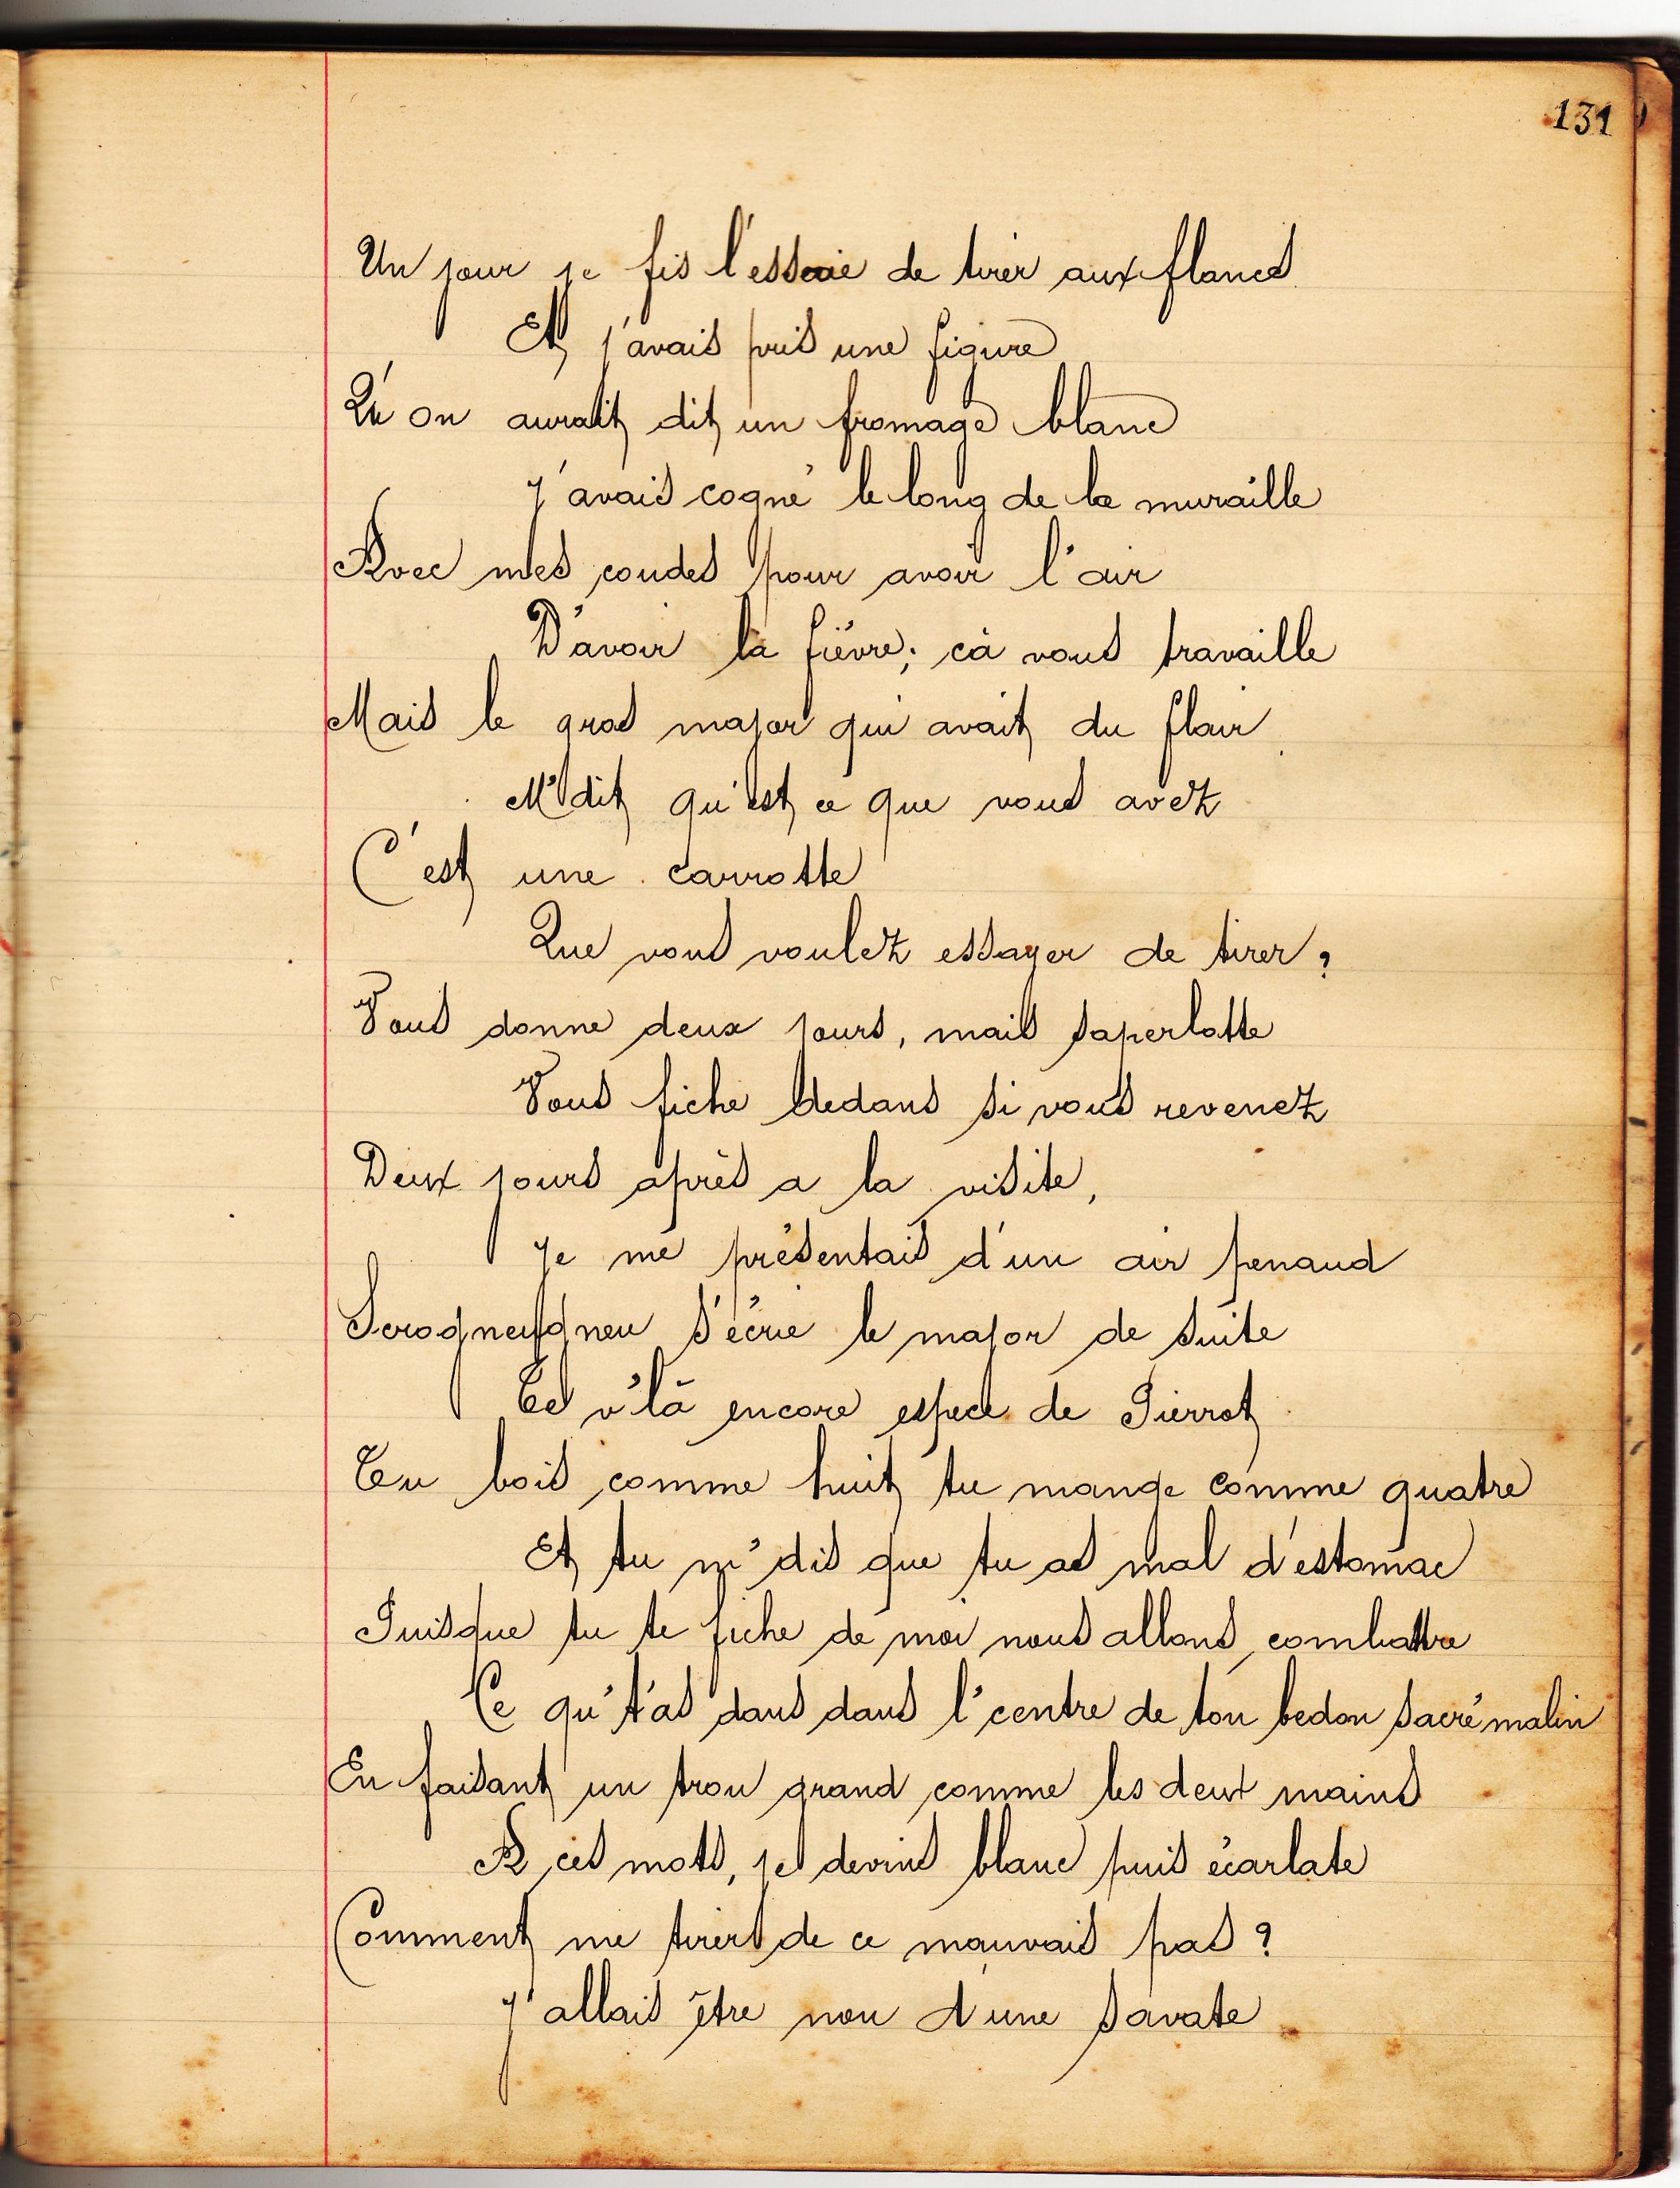 131
Un jour je fis l'essaie de tirer aux flancs
Et j'avais pris une figure
Qu'on aurait dit un fromage blanc
J'avais cogné le long de la muraille
Avec mes coudes pour avoir l'air
D'avoir la fièvre; cà vous travaille
Mais le gros major qui avait du flair
M'dit qu'est ce que vous avez
C'est une carrotte
Que vous voulez essayer de tirer?
Vous donne deux jours, mais saperlotte
Vous fiche dedans si vous revenez
Deux jours après a la visite,
Je me présentais d'un air penaud
Scrogneugneu s'écrie le major de suite
Te v'là encore espece de Pierrot
Tu bois comme huit tu mange comme quatre
Et tu m'dis que tu as mal d'estomac
Puisque tu te fiche de moi nous allons combattre
Ce qu't'as dans dans l'centre de ton bedon sacré malin
En faisant un trou grand comme les deux mains
A ces mots, je devins blanc puis écarlate
Comment me tirer de ce mauvais pas?
J'allais être nou d'une savate